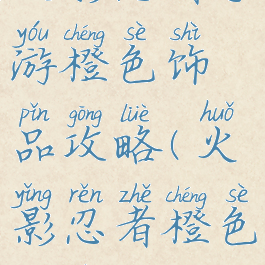 yóu chéng sè shì
游橙色饰
pǐn gōng lüè huǒ
品攻略(火
yǐng rěn zhě chéng sè
影忍者橙色